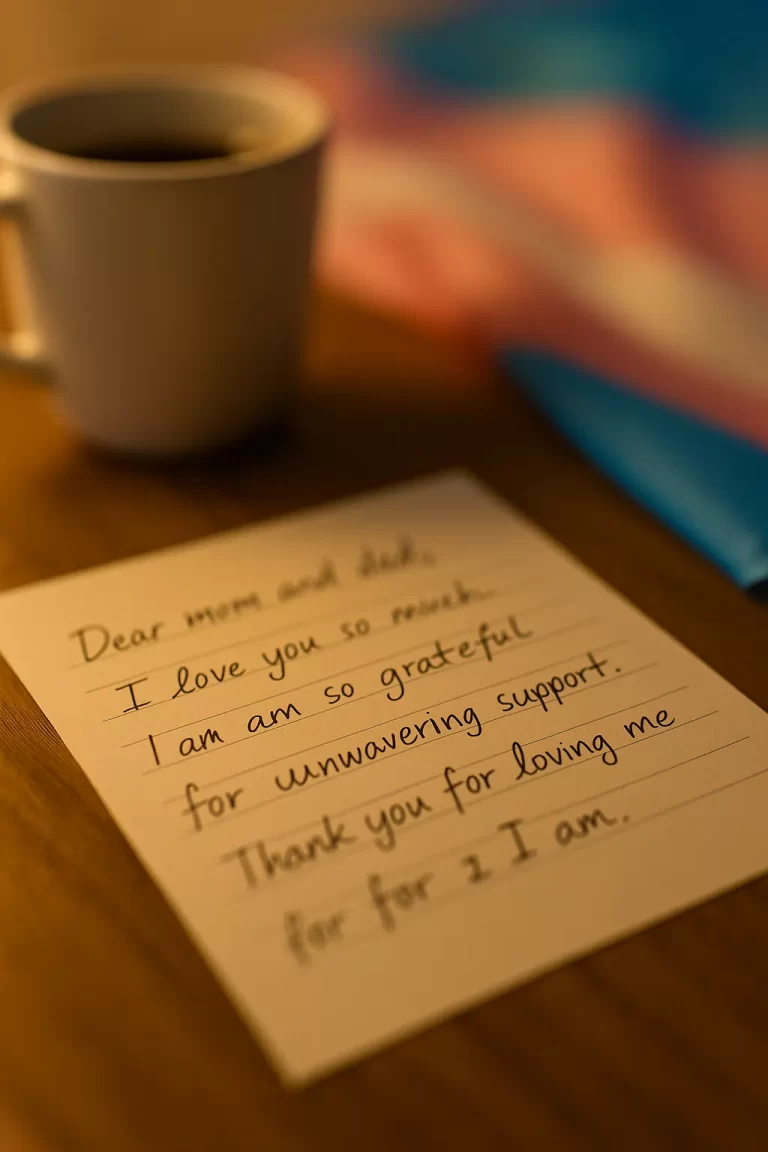 Dear mom and dad,
I love you so much
I am am so grateful
for unwavering support.
Thank you for loving me
for for I am.